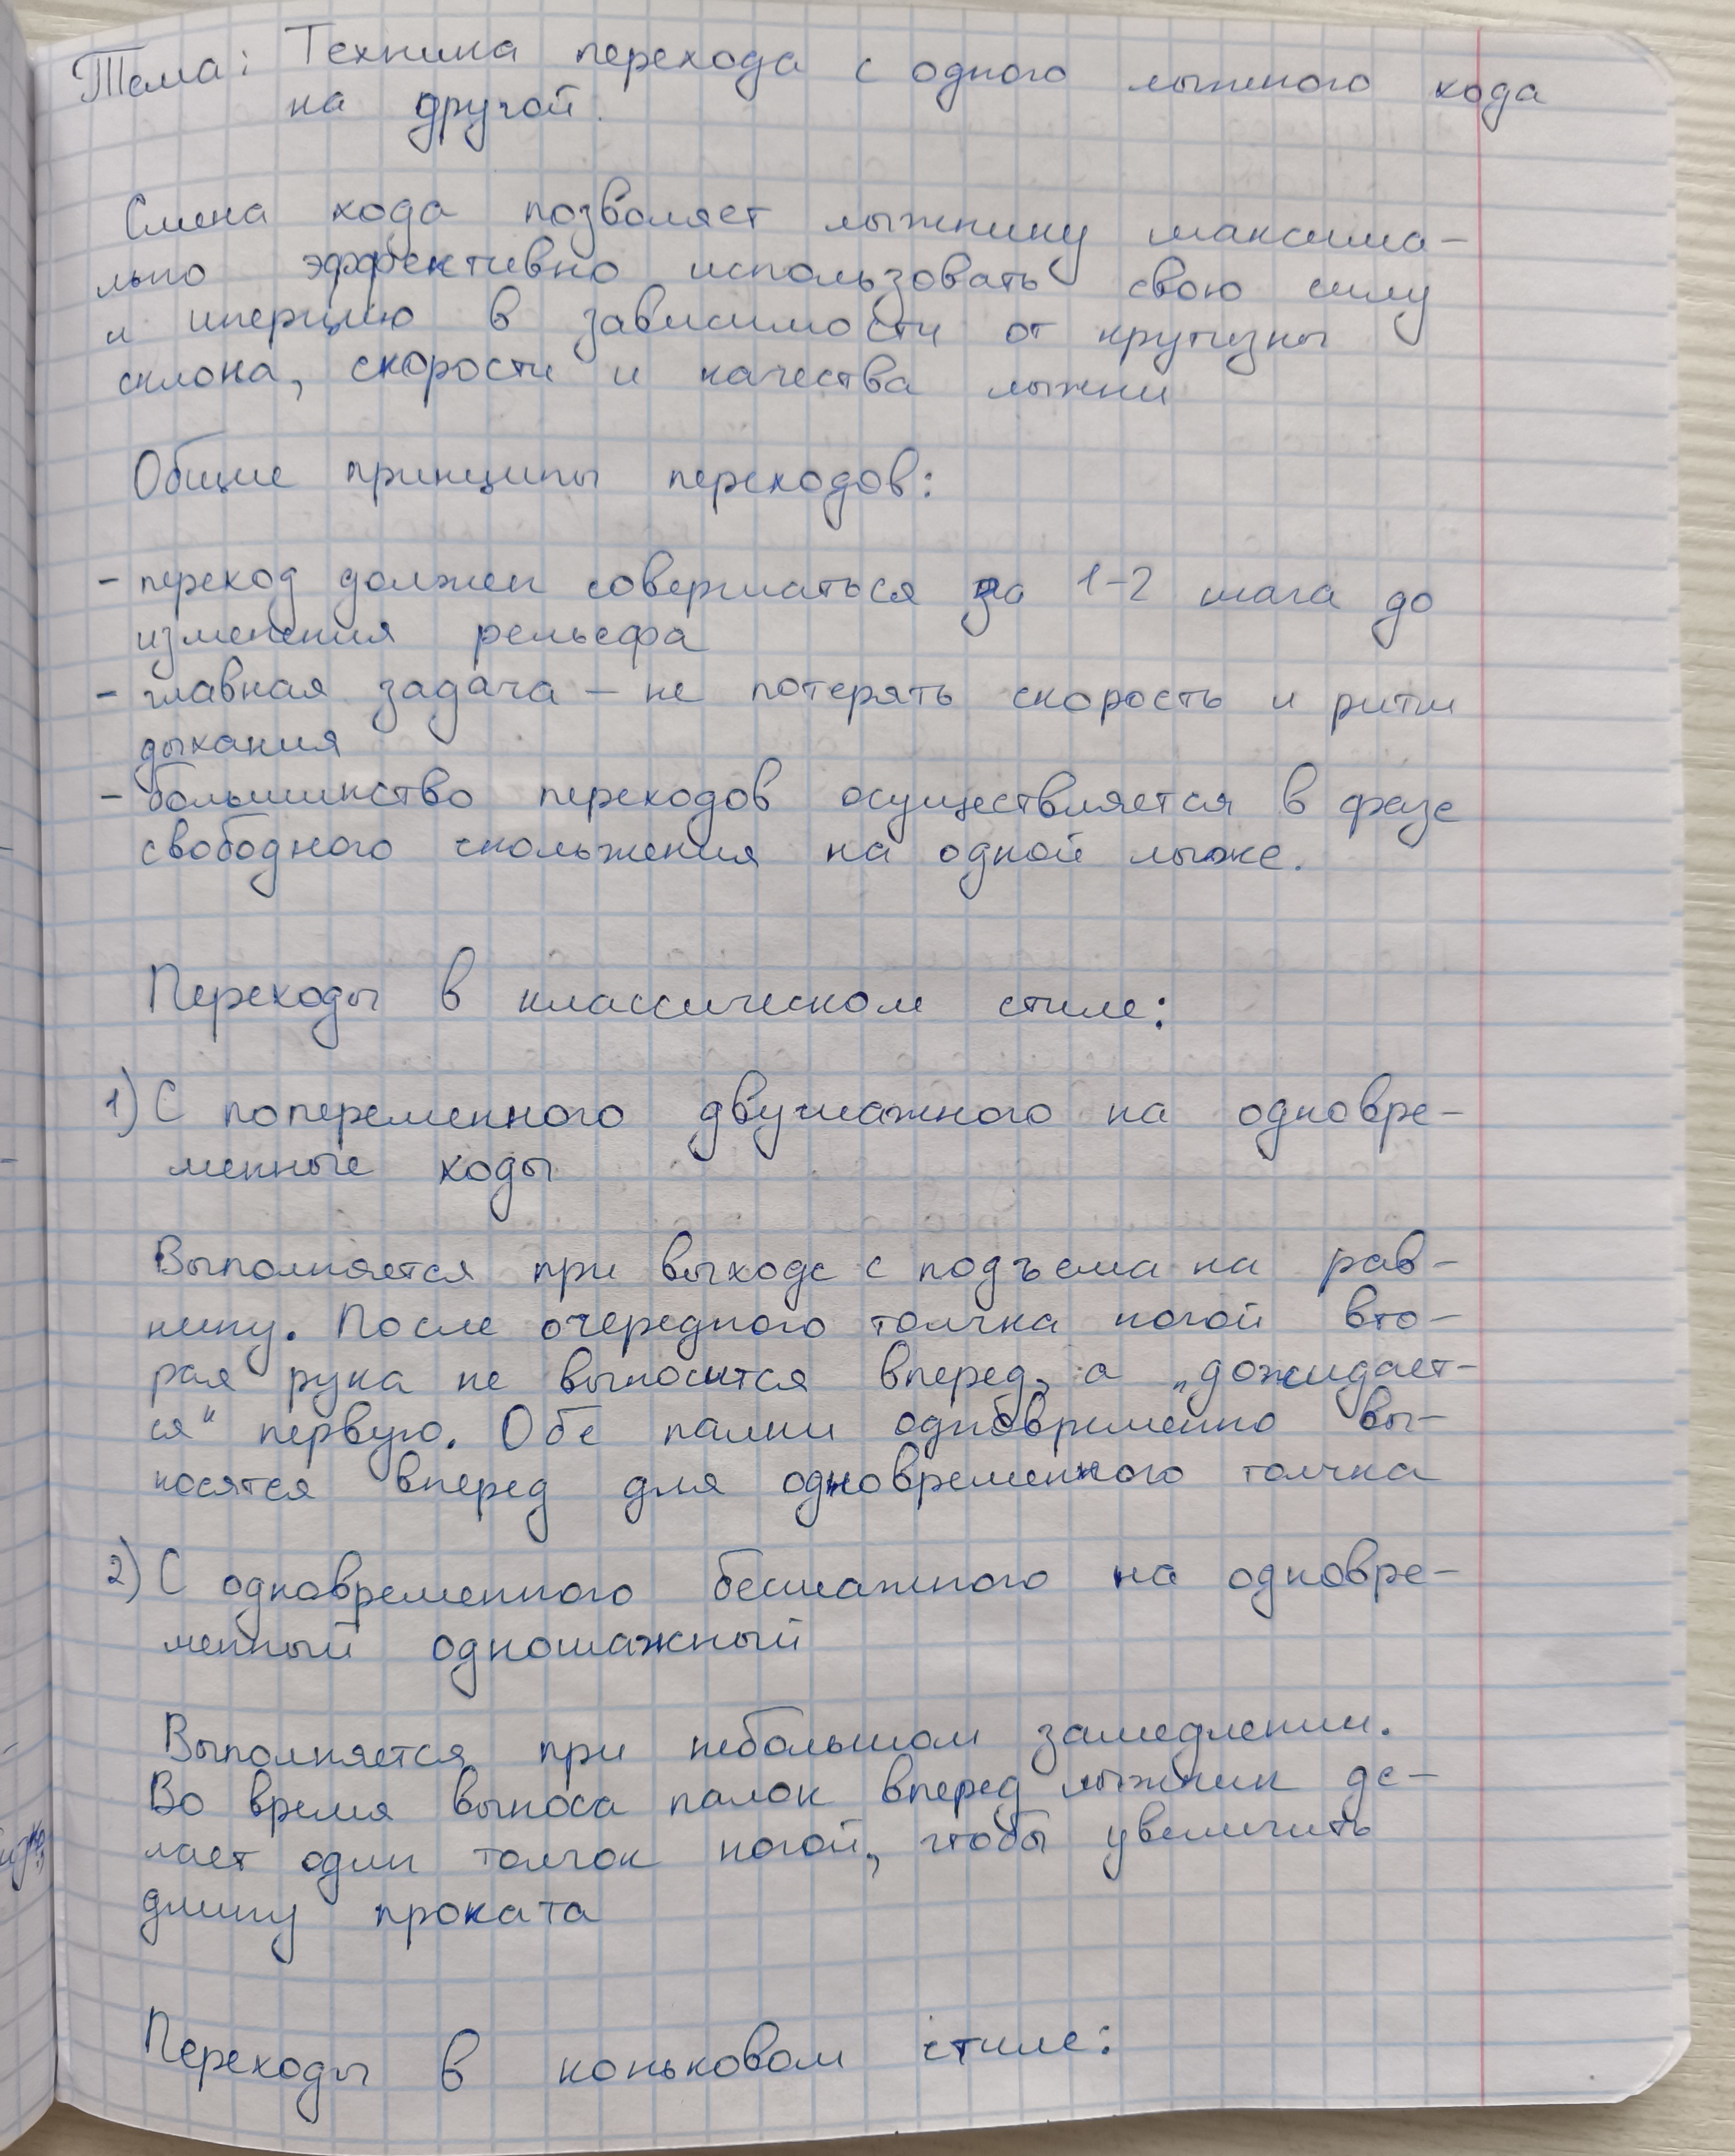 Тема: Техника перехода с одного лыжного хода
на другой.
Смена хода позволяет лыжнику максима-
льно эффективно использовать свою силу
и инерцию в зависимости от крутизны
склона, скорости и качества лыжни
Общие принципы переходов:
- переход должен совершаться за 1-2 шага до
изменения рельефа
- главная задача – не потерять скорость и ритм
дыхания
- большинство переходов осуществляется в фазе
свободного скольжения на одной лыже.
Переходы в классическом стиле:
1) С попеременного двушажного на одновре-
менные ходы
Выполняется при выходе с подъема на рав-
нину. После очередного толчка ногой вто-
рая рука не выносится вперед, а „дожидает-
ся“ первую. Обе палки одновременно вы-
носятся вперед для одновременного толчка
2) С одновременного бесшажного на одновре-
менный одношажный
Выполняется при небольшом замедлении.
Во время выноса палок вперед лыжник де-
лает один толчок ногой, чтобы увеличить
длину проката
Переходы в коньковом стиле: